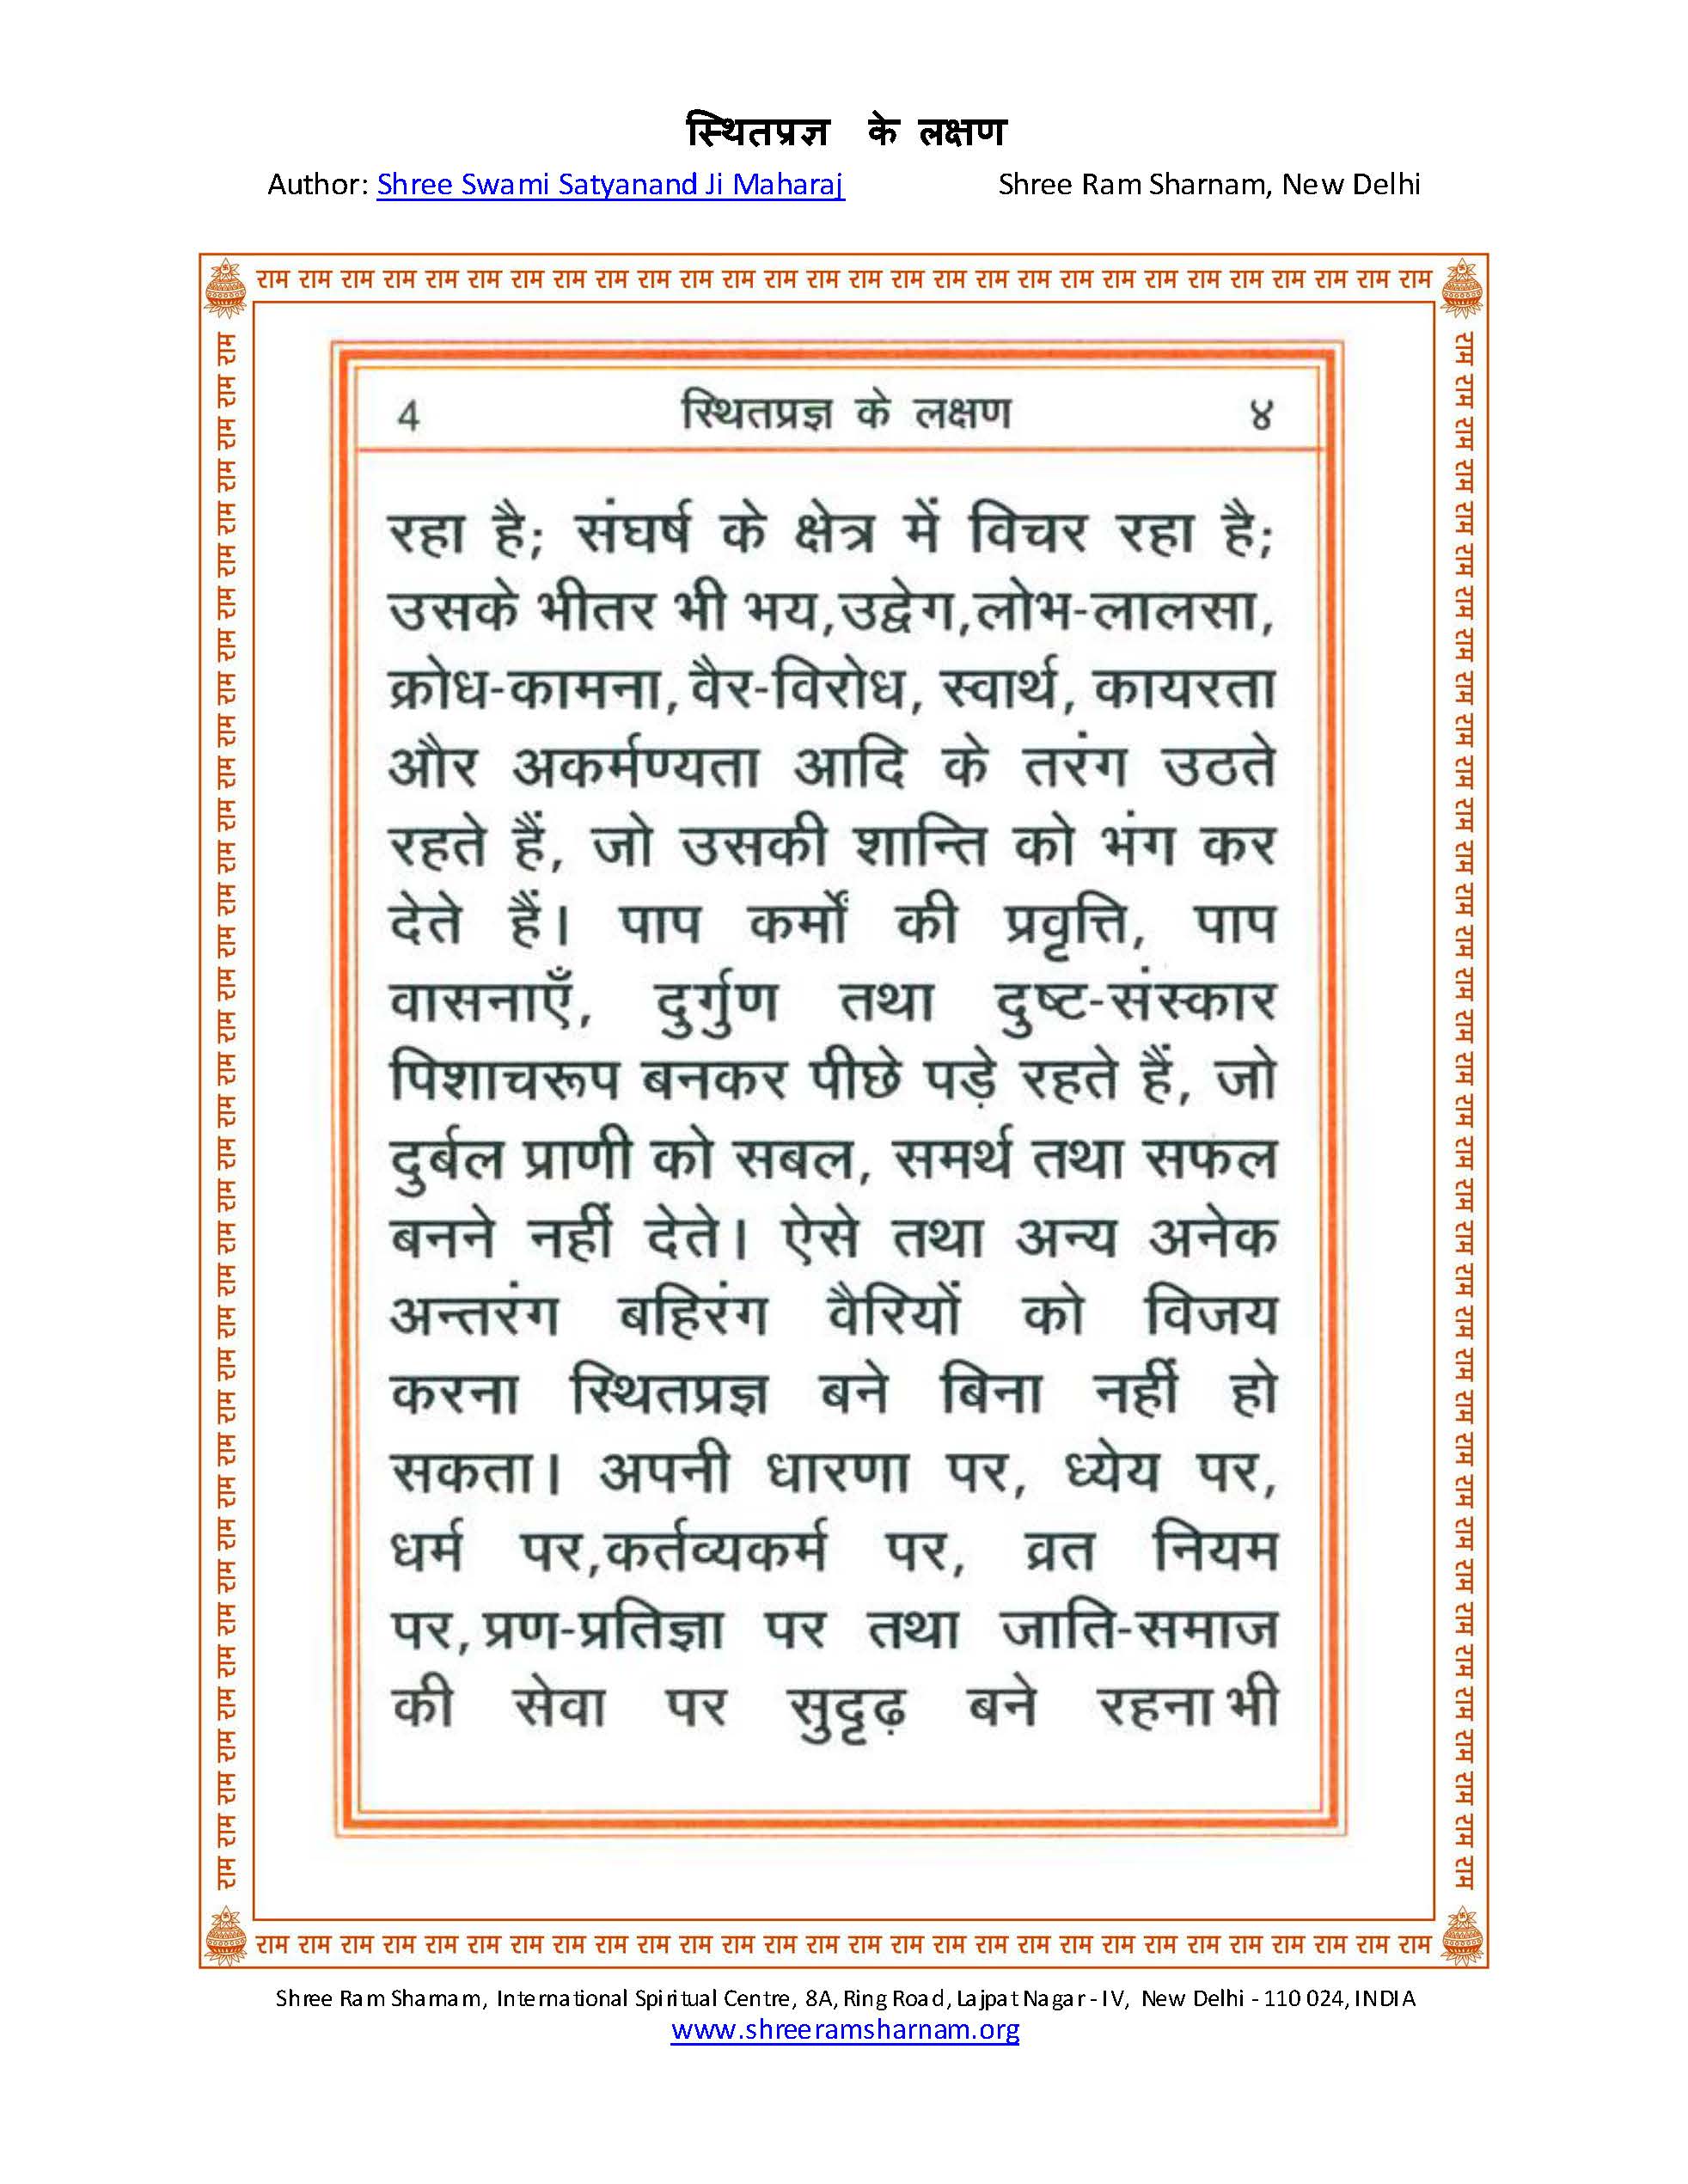 स्थितप्रज्ञ के लक्षण
Author: Shree Swami Satyanand Ji Maharaj Shree Ram Sharnam, New Delhi
राम राम राम राम राम राम राम राम राम राम राम राम राम राम राम राम राम राम राम राम राम राम राम राम राम राम राम राम
4 स्थितप्रज्ञ के लक्षण ४
रहा है; संघर्ष के क्षेत्र में विचर रहा है;
उसके भीतर भी भय,उद्वेग,लोभ-लालसा,
क्रोध-कामना, वैर-विरोध, स्वार्थ, कायरता
और अकर्मण्यता आदि के तरंग उठते
रहते हैं, जो उसकी शान्ति को भंग कर
देते हैं। पाप कर्मों की प्रवृत्ति, पाप
वासनाएँ, दुर्गुण तथा दुष्ट-संस्कार
पिशाचरूप बनकर पीछे पड़े रहते हैं, जो
दुर्बल प्राणी को सबल, समर्थ तथा सफल
बनने नहीं देते। ऐसे तथा अन्य अनेक
अन्तरंग बहिरंग वैरियों को विजय
करना स्थितप्रज्ञ बने बिना नहीं हो
सकता। अपनी धारणा पर, ध्येय पर,
धर्म पर,कर्तव्यकर्म पर, व्रत नियम
पर, प्रण-प्रतिज्ञा पर तथा जाति-समाज
की सेवा पर सुदृढ़ बने रहना भी
राम राम राम राम राम राम राम राम राम राम राम राम राम राम राम राम राम राम राम राम राम राम राम राम राम राम राम राम
राम राम राम राम राम राम राम राम राम राम राम राम राम राम राम राम राम राम राम राम राम राम राम राम राम राम राम राम राम राम राम राम राम राम राम राम राम
राम राम राम राम राम राम राम राम राम राम राम राम राम राम राम राम राम राम राम राम राम राम राम राम राम राम राम राम राम राम राम राम राम राम राम राम राम
Shree Ram Sharnam, International Spiritual Centre, 8A, Ring Road, Lajpat Nagar - IV, New Delhi - 110 024, INDIA
www.shreeramsharnam.org